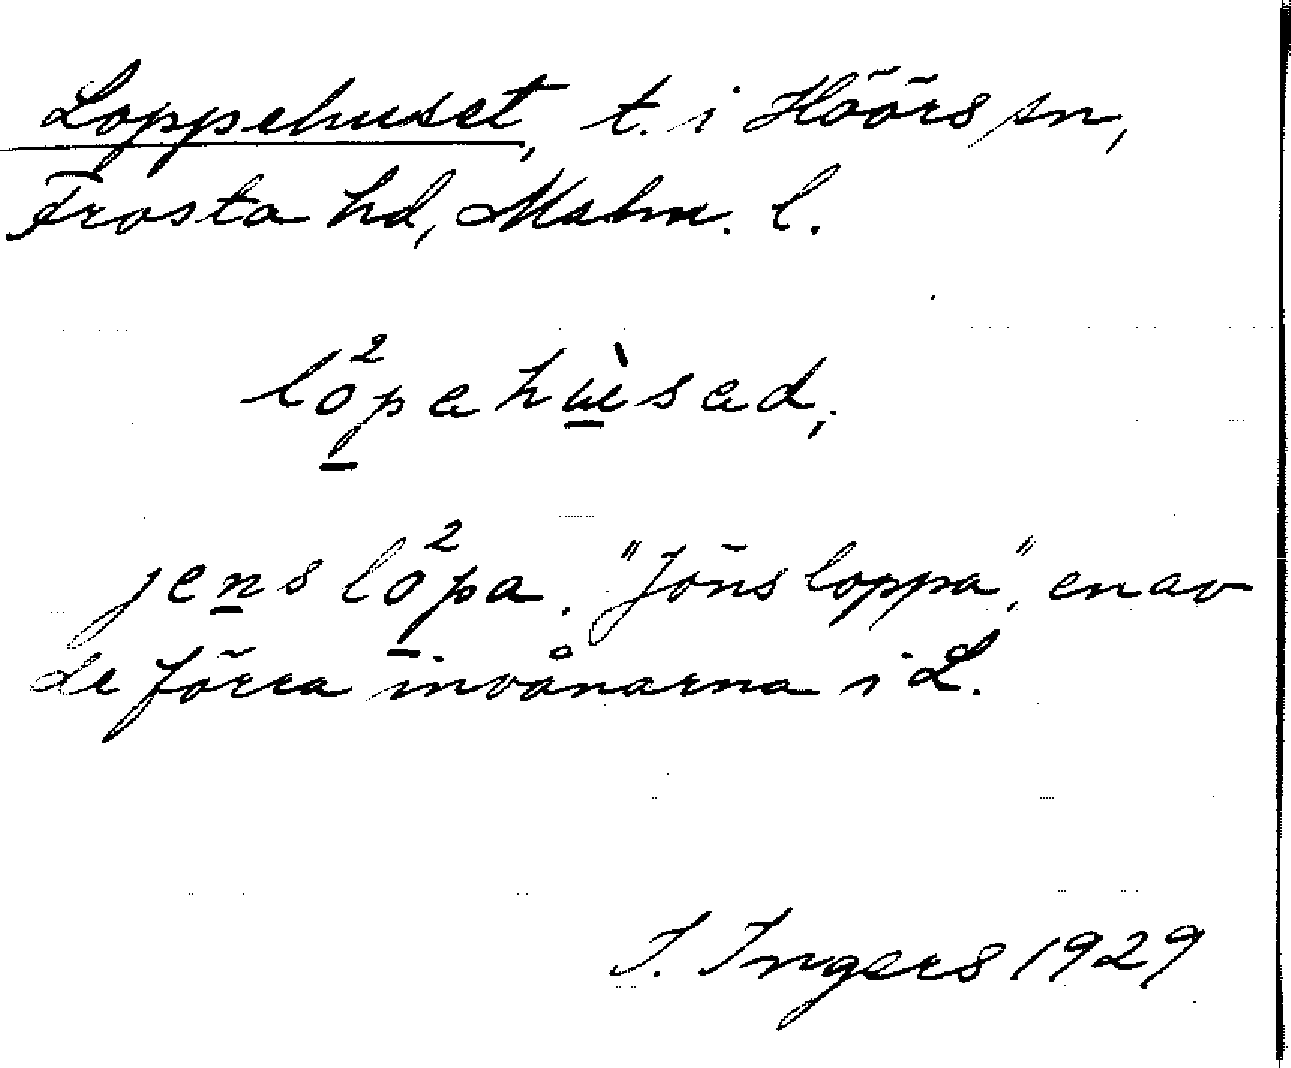 Loppehuset, t. i Höörs sn,
Frosta hd, Malm. l.
lo̲²pahù̲sad,
jen̲s lo̲²pa. "Jöns loppa", en av
de förra invånarna i L.
I. Ingers 1929